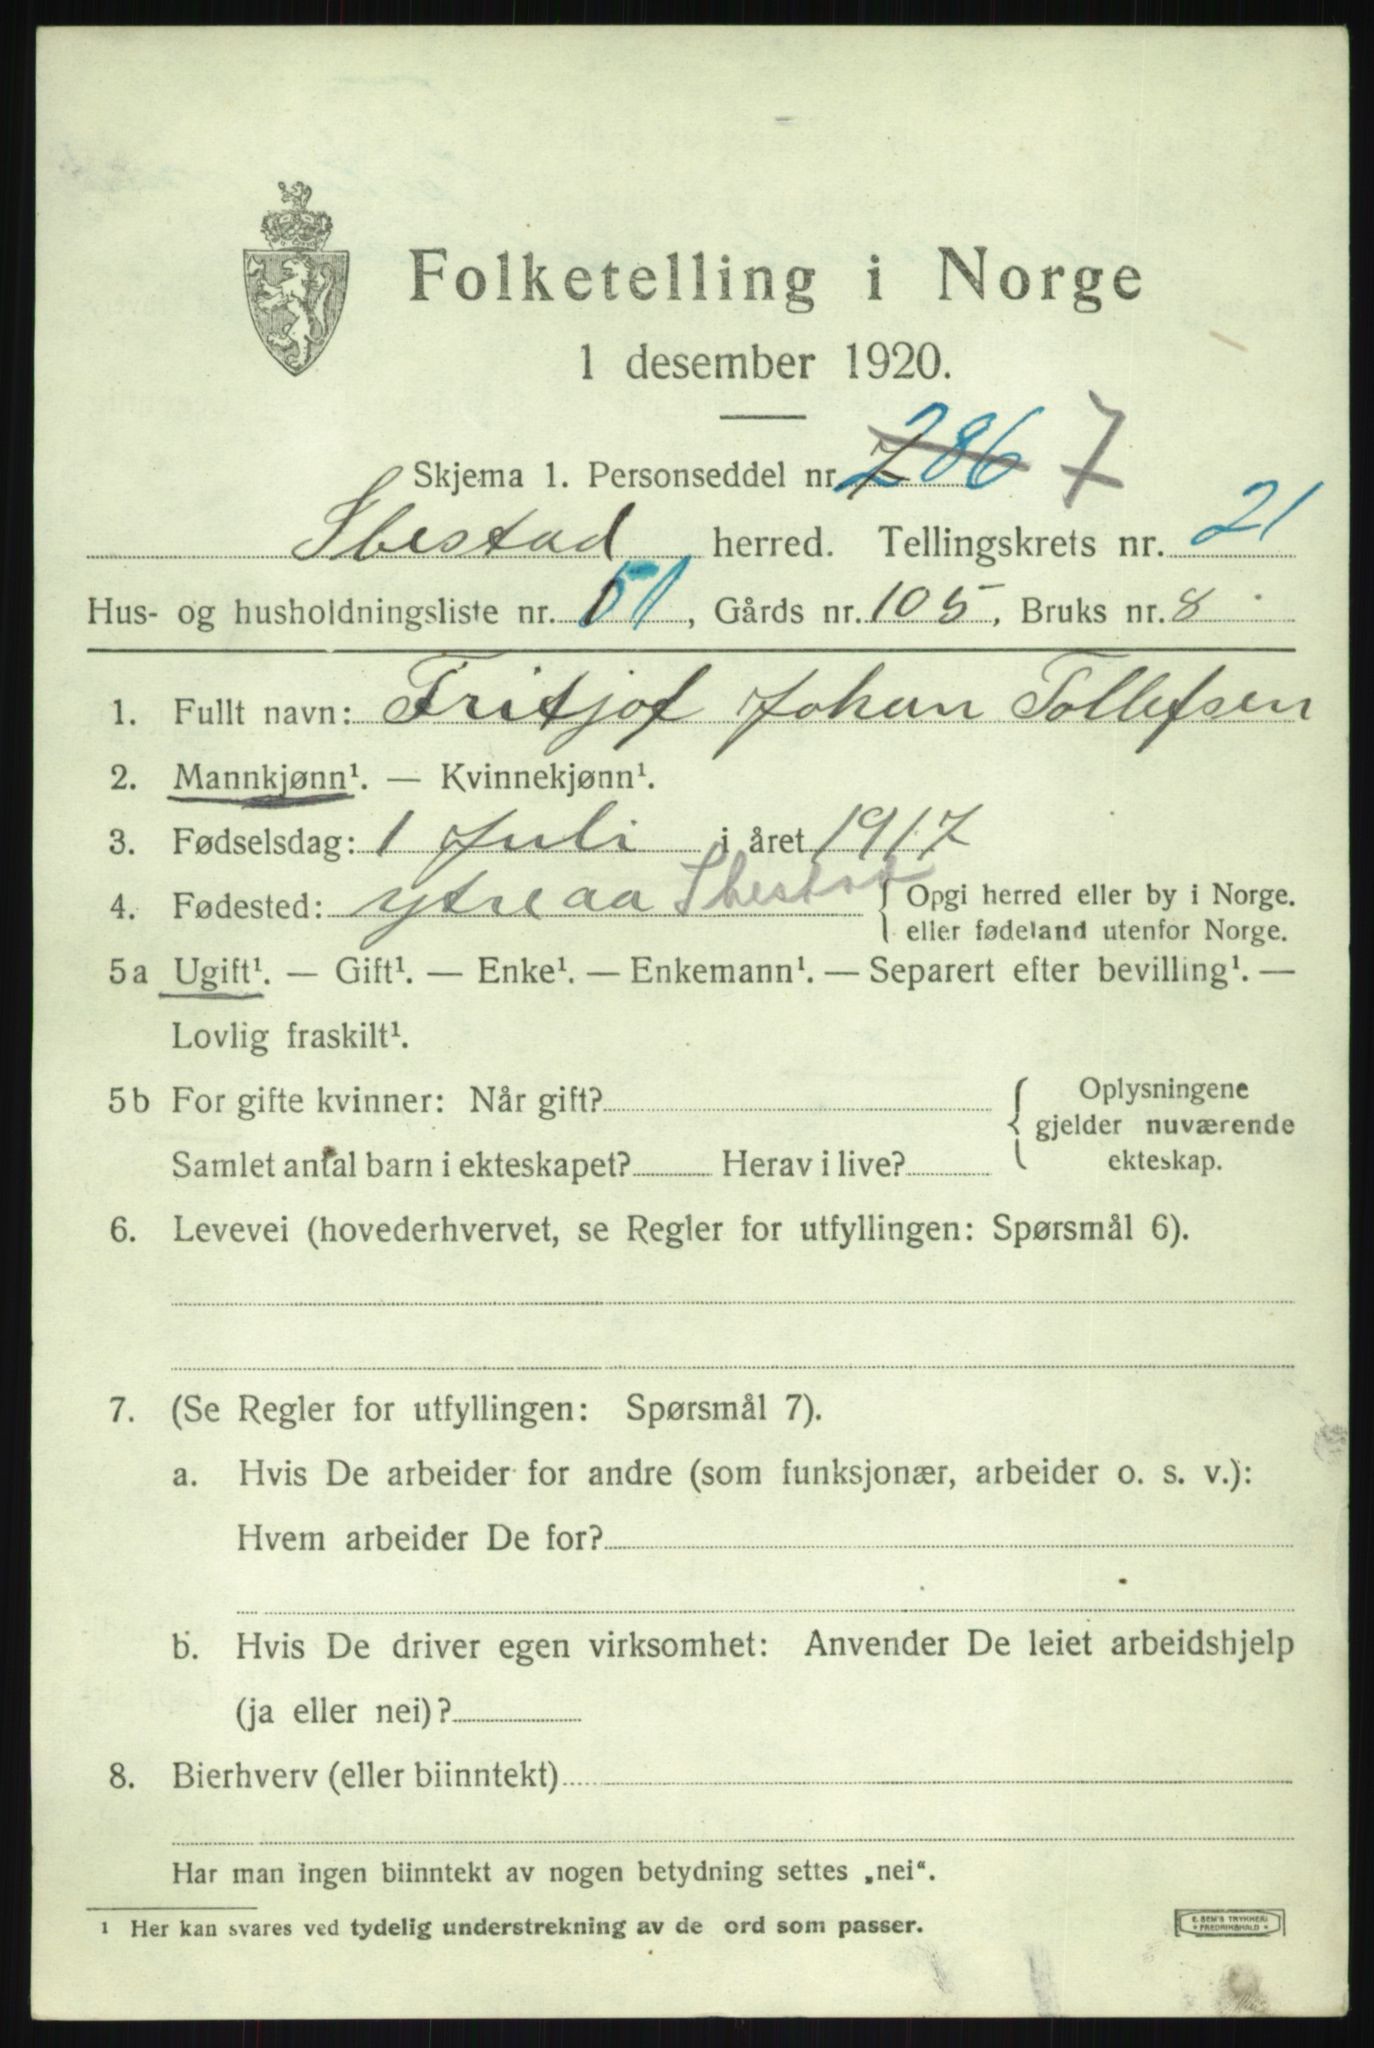 Folketelling i Norge
1 desember 1920.
Skjema 1. Personseddel nr. 286 7
Ibestad herred. Tellingskrets nr. 21
Hus- og husholdningsliste nr. 51, Gårds nr. 105, Bruks nr. 8
1. Fullt navn: Fritjof Johan Tollefsen
2. Mannkjønn¹. — Kvinnekjønn¹.
3. Fødselsdag: 1 Juli i året 1917
4. Fødested: ytre aa Ibestad { Opgi herred eller by i Norge.
eller fødeland utenfor Norge.
5a Ugift¹. — Gift¹. — Enke¹. — Enkemann¹. — Separert efter bevilling¹. —
Lovlig fraskilt¹.
5b For gifte kvinner: Når gift?
Samlet antal barn i ekteskapet? Herav i live?
{ Oplysningene
gjelder nuværende
ekteskap.
6. Levevei (hovederhvervet, se Regler for utfyllingen: Spørsmål 6).
7. (Se Regler for utfyllingen: Spørsmål 7).
a. Hvis De arbeider for andre (som funksjonær, arbeider o. s. v.):
Hvem arbeider De for?
b. Hvis De driver egen virksomhet: Anvender De leiet arbeidshjelp
(ja eller nei)?
8. Bierhverv (eller biinntekt)
Har man ingen biinntekt av nogen betydning settes „nei“.
¹ Her kan svares ved tydelig understrekning av de ord som passer.
E. SEM'S TRYKKERI
* FREDRIKSHALD *